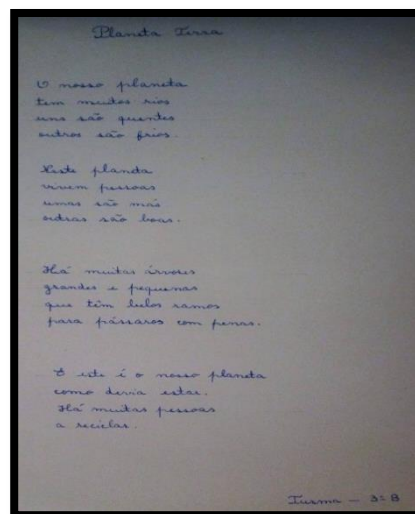 Planeta Terra
O nosso planeta
tem muitos rios
uns são quentes
outros são frios.
Neste planeta
vivem pessoas
umas são más
outras são boas.
Há muitas árvores
grandes e pequenas
que têm belos ramos
para pássaros com penas.
E este é o nosso planeta
como devia estar.
Há muitas pessoas
a reciclar.
Turma - 3º B